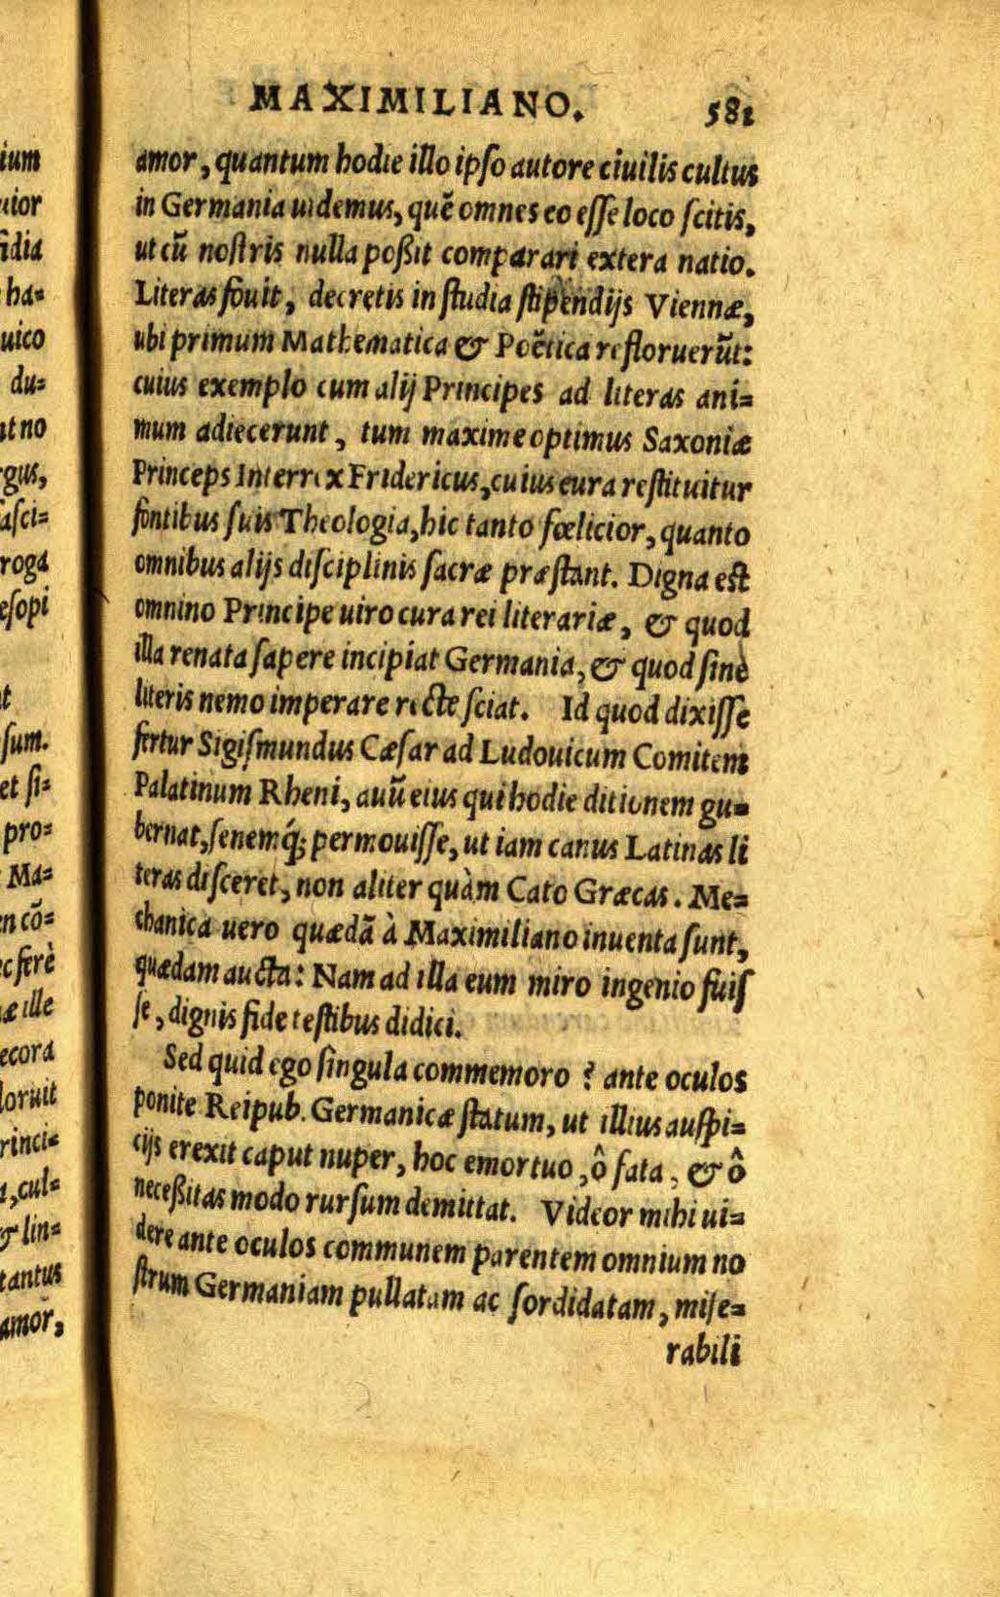 MAXIMILIANO. 581
amor, quantum hodie illo ipſo autore ciuilis cultus
in Germania uidemus, quẽ omnes eo eſſe loco ſcitis,
ut cũ noſtris nulla poßit comparari extera natio.
Literas fouit, decretis in ſtudia ſtipendijs Viennæ,
ubi primum Mathematica & Poëtica refloruerũt:
cuius exemplo cum alij Principes ad literas ani=
mum adiecerunt, tum maxime optimus Saxoniæ
Princeps Interrex Fridericus, cuius cura reſtituitur
fontibus ſuis Theologia, hic tanto fœlicior, quanto
omnibus alijs diſciplinis ſacræ præſtant. Digna eſt
omnino Principe uiro cura rei literariæ, & quod
illa renata ſapere incipiat Germania, & quod ſine
literis nemo imperare recte ſciat. Id quod dixiſſe
fertur Sigiſmundus Cæſar ad Ludouicum Comitem
Palatinum Rheni, auũ eius qui hodie ditionem gu=
bernat, ſenemq́; permouiſſe, ut iam canus Latinas li
teras diſceret, non aliter quàm Cato Græcas. Me=
chanica uero quædã à Maximiliano inuenta ſunt,
quædam aucta: Nam ad illa eum miro ingenio fuiſ
ſe, dignis fide teſtibus didici.
Sed quid ego ſingula commemoro? ante oculos
ponite Reipub. Germanicæ ſtatum, ut illius auſpi=
cijs erexit caput nuper, hoc emortuo, ô fata, & ô
neceßitas modo rurſum demittat. Videor mihi ui=
dere ante oculos communem parentem omnium no
ſtrum Germaniam pullatam ac ſordidatam, miſe=
rabili
ium
uior
fidia
ha=
uico
du=
at no
rgus,
aſci=
roga
eſopi
t
ſum.
et ſi=
pro=
Ma=
n cõ=
c ferè
æ ille
ecora
loruit
rinci=
a, cul=
& lin=
tantus
amor,